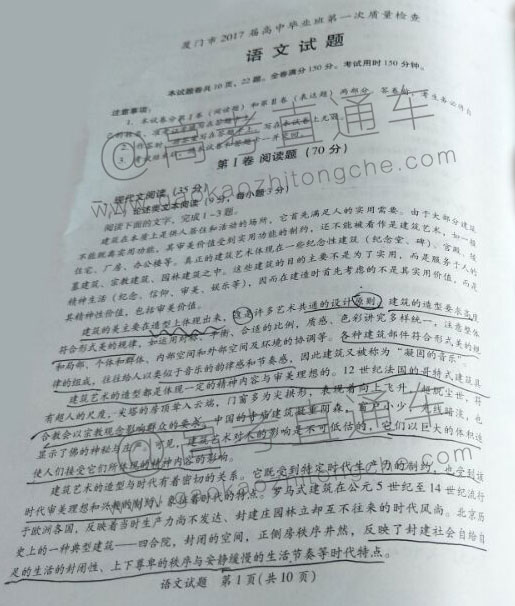 厦门市2017届高中毕业班第一次质量检查
语文试题
本试题卷共10页，22题。全卷满分150分。考试用时150分钟。
注意事项：
1．本试卷分第Ⅰ卷（阅读题）和第Ⅱ卷（表达题）两部分。答卷前，考生务必将自
第Ⅰ卷 阅读题（70分）
一、现代文阅读（35分）
（一）论述类文本阅读（9分，每小题3分）
阅读下面的文字，完成1～3题。
建筑在本质上是供人居住和活动的场所，它首先满足人的实用需要。由于大部分建筑
不能脱离实用功能，其审美价值受到实用功能的制约，还不能被看作是建筑艺术，如一般
住宅、厂房、办公楼等。真正的建筑艺术体现在一些纪念性建筑（纪念堂、碑）、宫殿、陵
墓建筑、宗教建筑、园林建筑之中。这些建筑的目的主要不是为了实用，而是服务于人的
精神生活（纪念、信仰、审美、娱乐等），因而在建造时首先考虑的不是其实用价值，而是
其精神性价值，包括审美价值。
建筑的美主要在造型上体现出来，这是许多艺术共通的设计原则。建筑的造型要求高度
符合形式美的规律，如运用对称、平衡、合适的比例，质感、色彩讲究多样统一，注意整体
和局部、个体和群体、内部空间和外部空间及环境的协调等。各种建筑部件符合形式美的规
律的组成，往往给人以类似于音乐的韵律感和节奏感，因此建筑又被称为“凝固的音乐”。
建筑艺术的造型都是体现一定的精神内容与审美理想的。12世纪法国的哥特式建筑具
有超人的尺度，尖塔的香顶耸入云端，门窗多为尖拱形，表现着向上飞升、超脱尘世，符
合教会以宗教观念影响群众的要求。中国的寺庙建筑凝重阴森，窗户小少，光线暗淡，也
显示了佛的神秘与庄严。可见，建筑艺术对人的影响是不可低估的，它们以巨大的体积迫
使人们接受它们所体现的精神内容的影响。
建筑艺术的造型与时代有着密切的关系。它既受到特定时代生产力的制约，也受到该
时代审美理想和宗教的制约，象征着时代的特点。罗马式建筑在公元5世纪至14世纪流行
于欧洲各国，反映着当时生产力尚不发达、封建庄园林立却至不往来的时代风尚。北京历
史上的一种典型建筑——四合院，封闭的空间，正侧房秩序井然，反映了封建社会自给自
足的生活的封闭性、上下尊卑的秩序与安静缓慢的生活节奏等时代特点。
语文试题 第1页(共10页)
@高考直通车
www.gaokaozhitongche.com